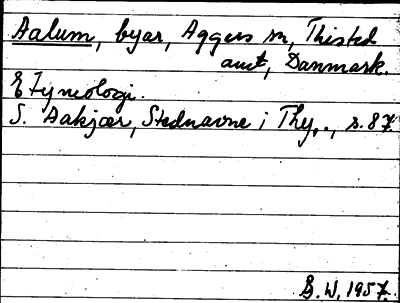 Aalum, byar, Aggers sn, Thisted
amt, Danmark.
Etymologi.
S. Aakjær, Stednavne i Thy, s. 87.
B. W. 1957.